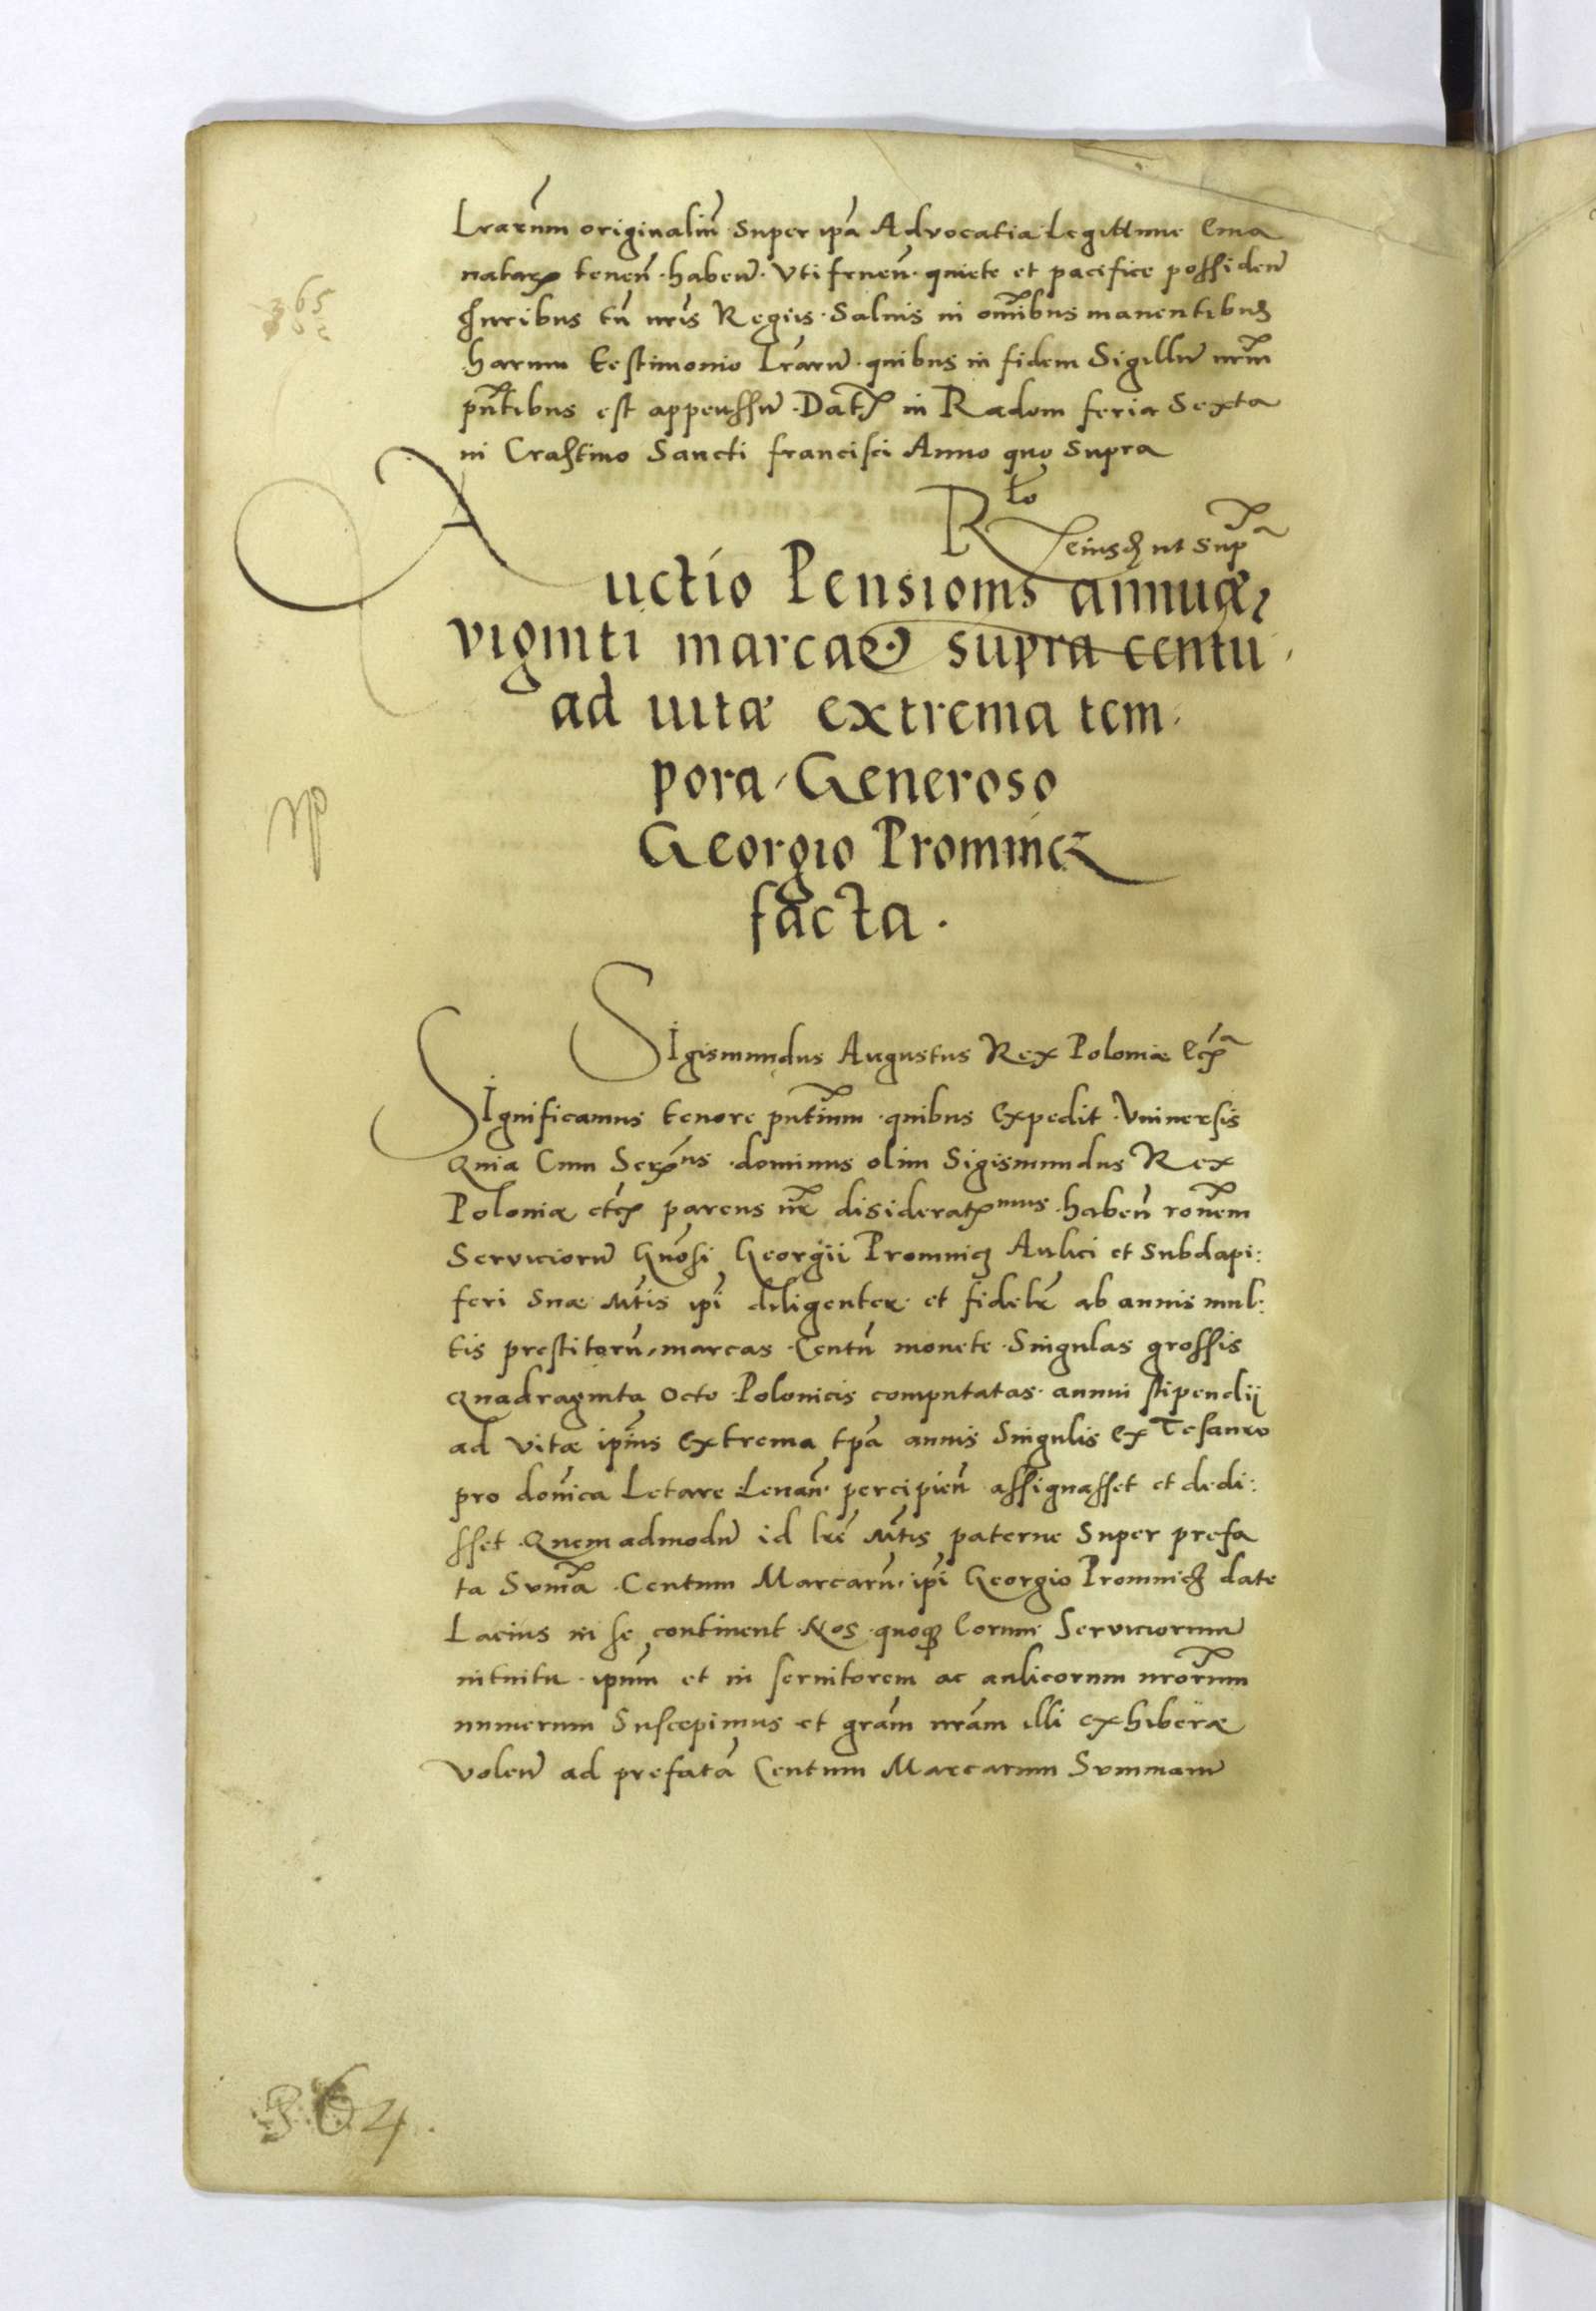 Lrarum originaliũ Super ipã Advocatia Legittime Ema
natarꝝ tenen̄ . haben̄ . Uti fruen̄ . quiete et pacifice possiden̄
Juribus tn̄ nr̃is Regiis . Salvis in om̃ibus manentibus
harum testimonio Lrarũ . quibus in fidem Sigillũ nrm̃
pn̄tibus est appensũ . Dat̃ in Radom feria Sexta
in Crastino Sancti francisci Anno quo Supra
R^{lo} eiusdẽ ut sup^{a}
Auctio Pensionis annuæ,
viginti marcarꝝ supra centũ
ad uitæ extrema tem
pora, Generoso
Georgio Promnicz
facta .
Sigismundus Augustus Rex Poloniæ Etc^{a}
Significamus tenore pn̄tium . quibus Expedit . Universis
Quia Cum Serᵐᵘˢ . dominus olim Sigismundus Rex
Poloniæ etc̃ parens nr̃ disideratᵐᵘˢ . haben̄ ron̄em
Serviciorũ Gn̄osi Georgii Promnicz Aulici et Subdapi:
feri Suæ Mtis ipĩ diligenter . et fidelr̃ ab annis mul:
tis prestitorũ, marcas . Centũ monete . Singulas grossis
Quadraginta Octo . Polonicis computatas . annui stipendij
ad vitæ ipĩus Extrema tpã annis Singulis Ex Tesauro
pro don̄ica Letare Lenan̄ . percipien̄ assignasset et dedi:
sset . Quemadmodũ id lrẽ Mtis paterne Super prefa
ta Sum̃a . Centum Marcarũ . ipĩ Georgio Promnicz date
Lacius in se continent . Nos . quoqꝫ Eorum Serviciorum
intuitu . ipum̃ et in servitorem ac aulicorum nrorum
numerum Suscepimus et grãm nrãm illi exhiberæ
volen̄ ad prefatã Centum Marcarum Summam
365
NP
364.